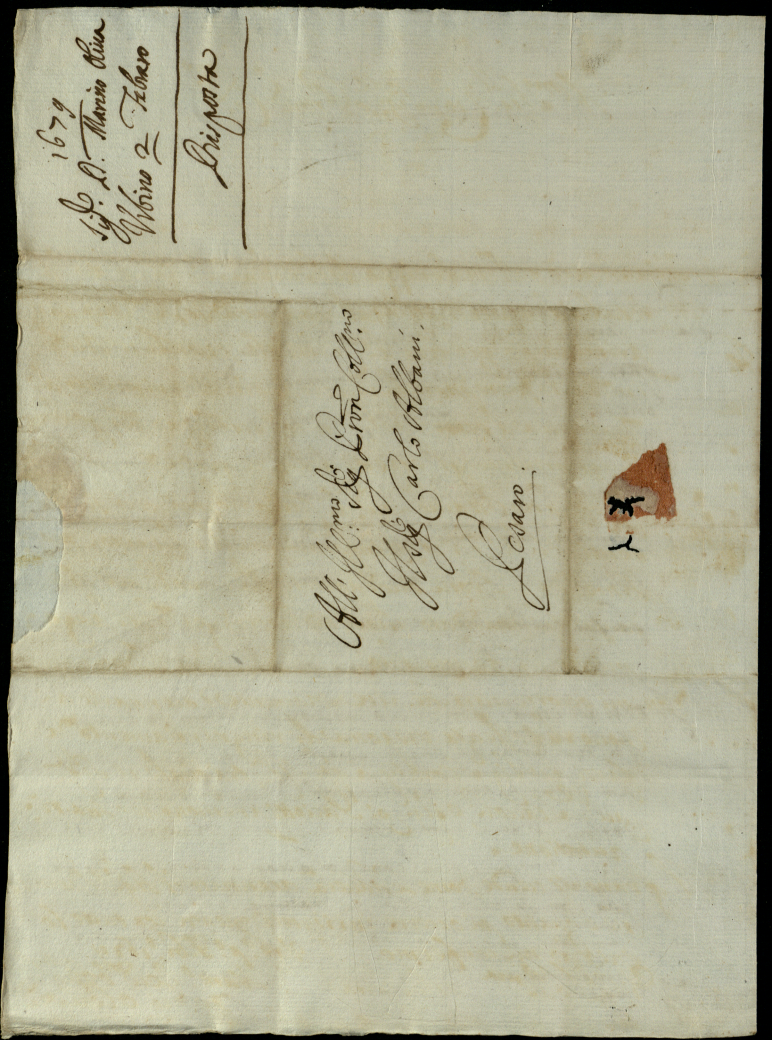 1679
Sig.r D. Marino Oliva
Urbino 2 Febraro
Risposta
All' Ill:mo Sig.r Pron Coll:mo
Il Sig.r Carlo Albani.
Pesaro.